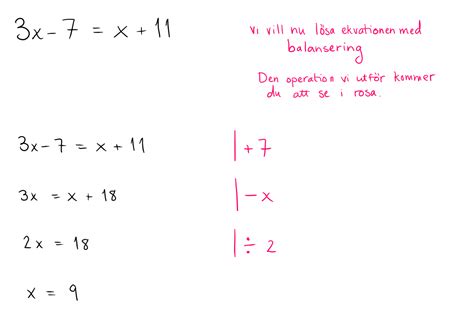 3x - 7 = x + 11
vi vill nu lösa ekvationen med
balansering
Den operation vi utför kommer
du att se i rosa.
3x - 7 = x + 11 | + 7
3x = x + 18 | - x
2x = 18 | ÷ 2
x = 9